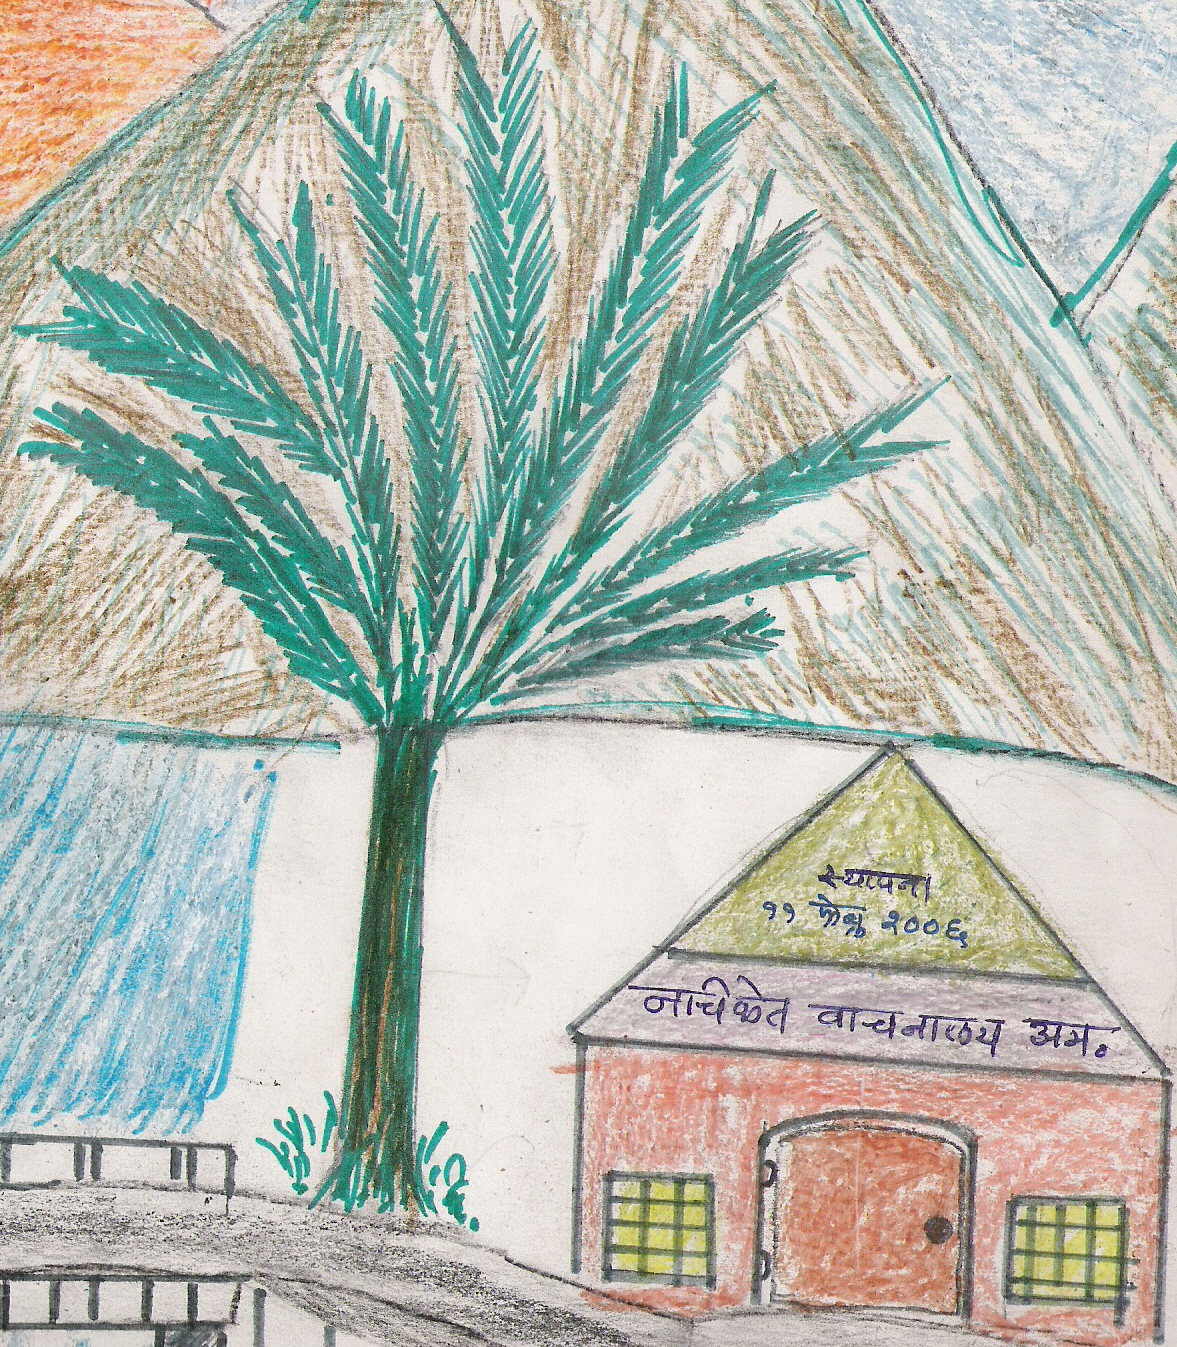 स्थापना
११ फेब्रु २००६
नाचिकेत वाचनालय अम.